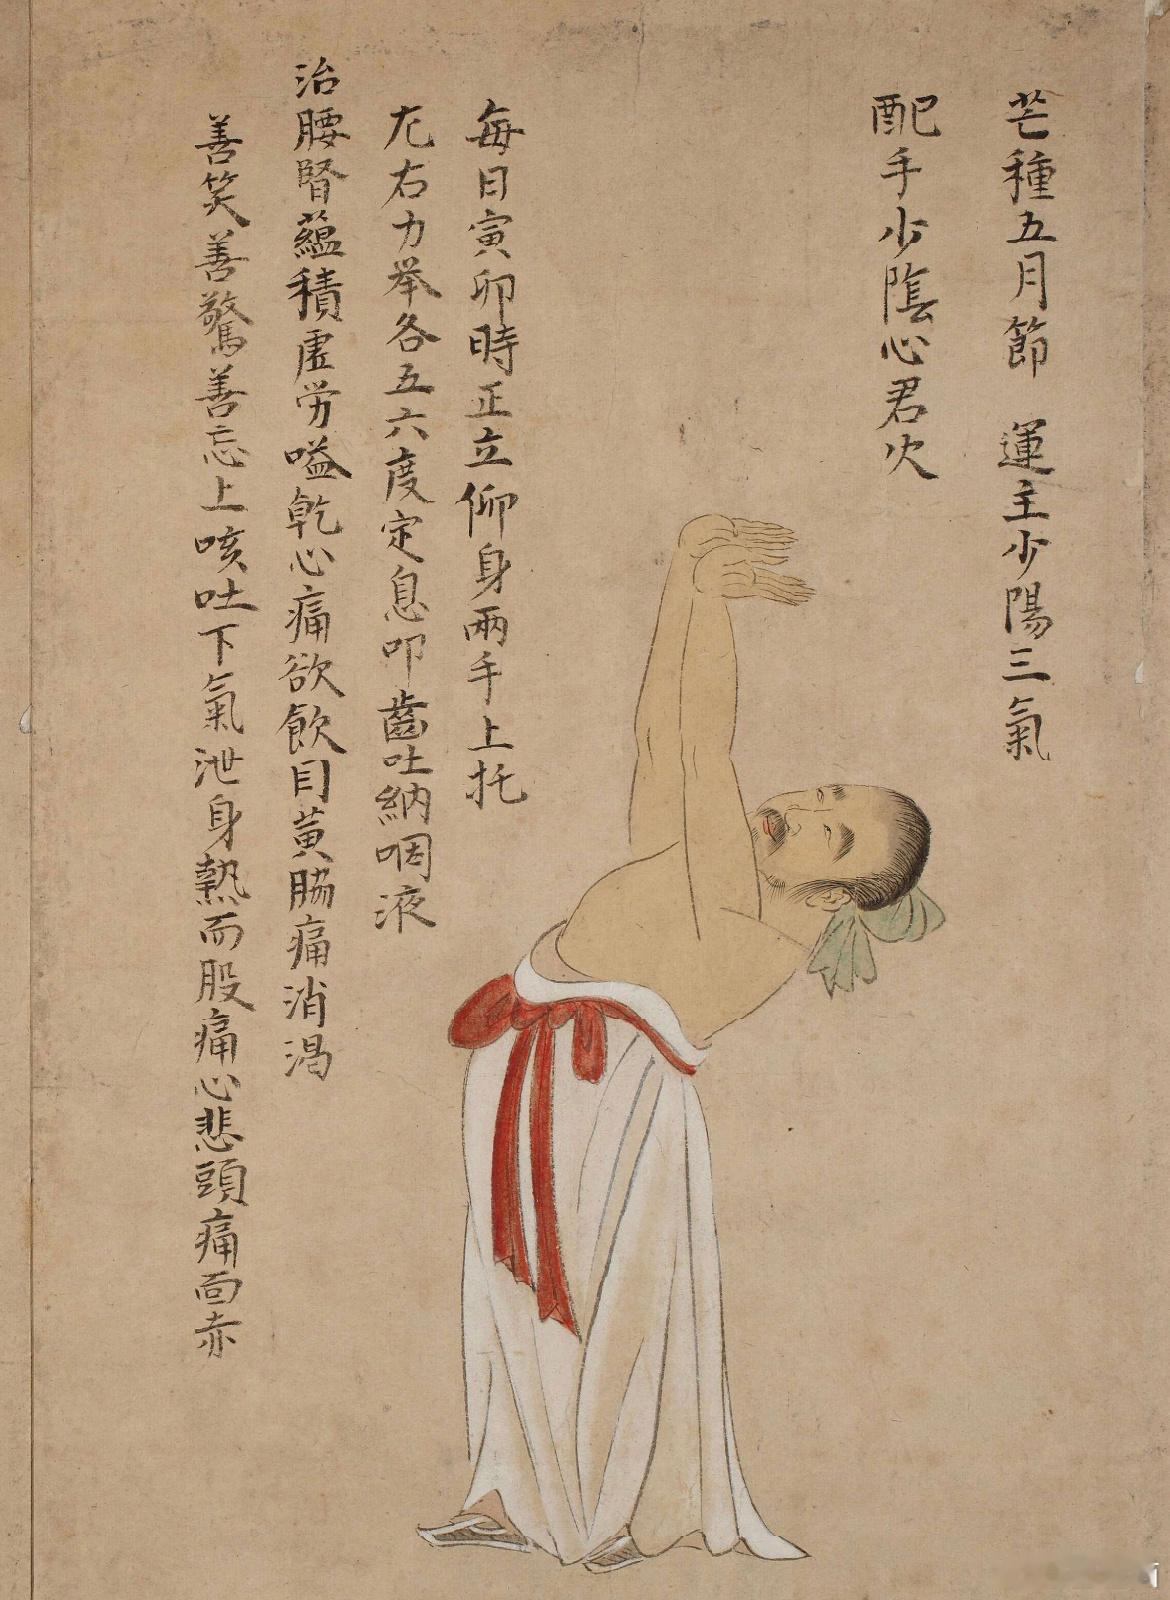 芒種五月節 運主少陽三氣
配手少陰心君火
每日寅卯時正立仰身兩手上托
左右力举各五六度定息叩齒吐納咽液
治腰腎蘊積虛労嗌乾心痛欲飲目黃脇痛消渴
善笑善驚善忘上咳吐下氣泄身熱而股痛心悲頭痛面赤